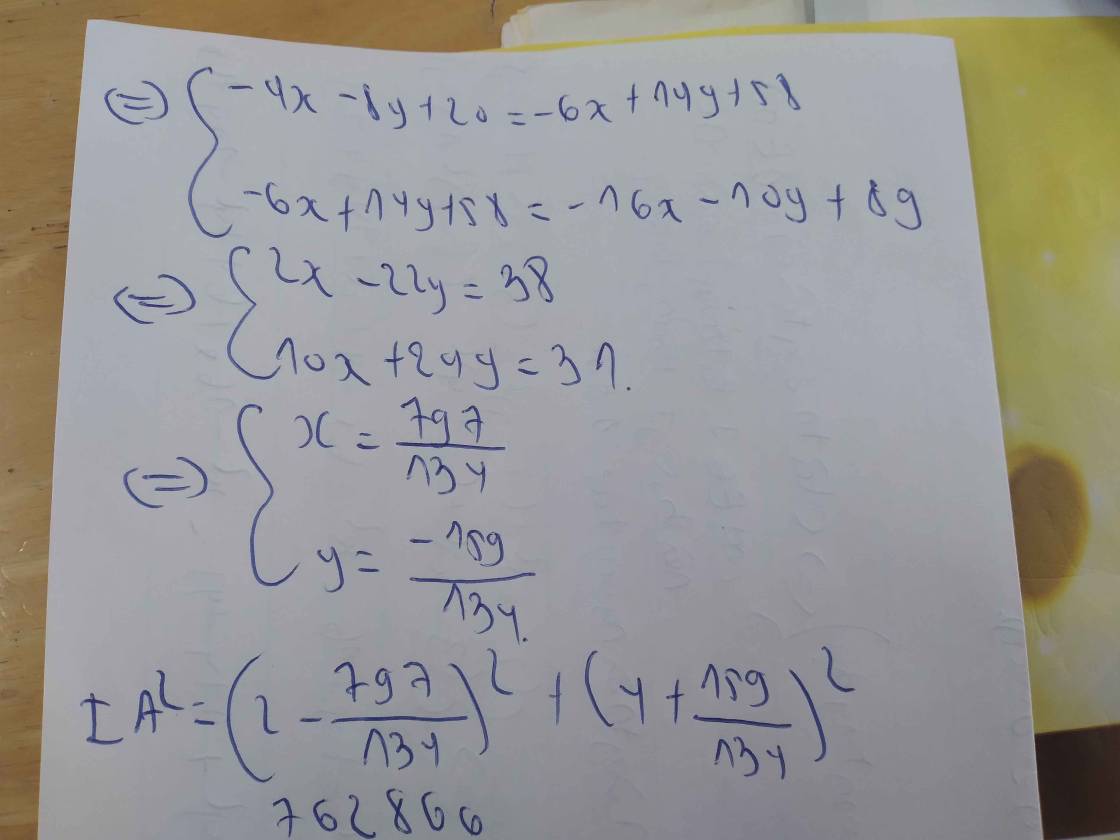 (=) { -4x - 8y + 20 = -6x + 14y + 58
-6x + 14y + 58 = -16x - 10y + 89
(=) { 2x - 22y = 38
10x + 24y = 31.
(=) { x = 797/134
y = -159/134.
IA² = (2 - 797/134)² + (4 + 159/134)²
762866